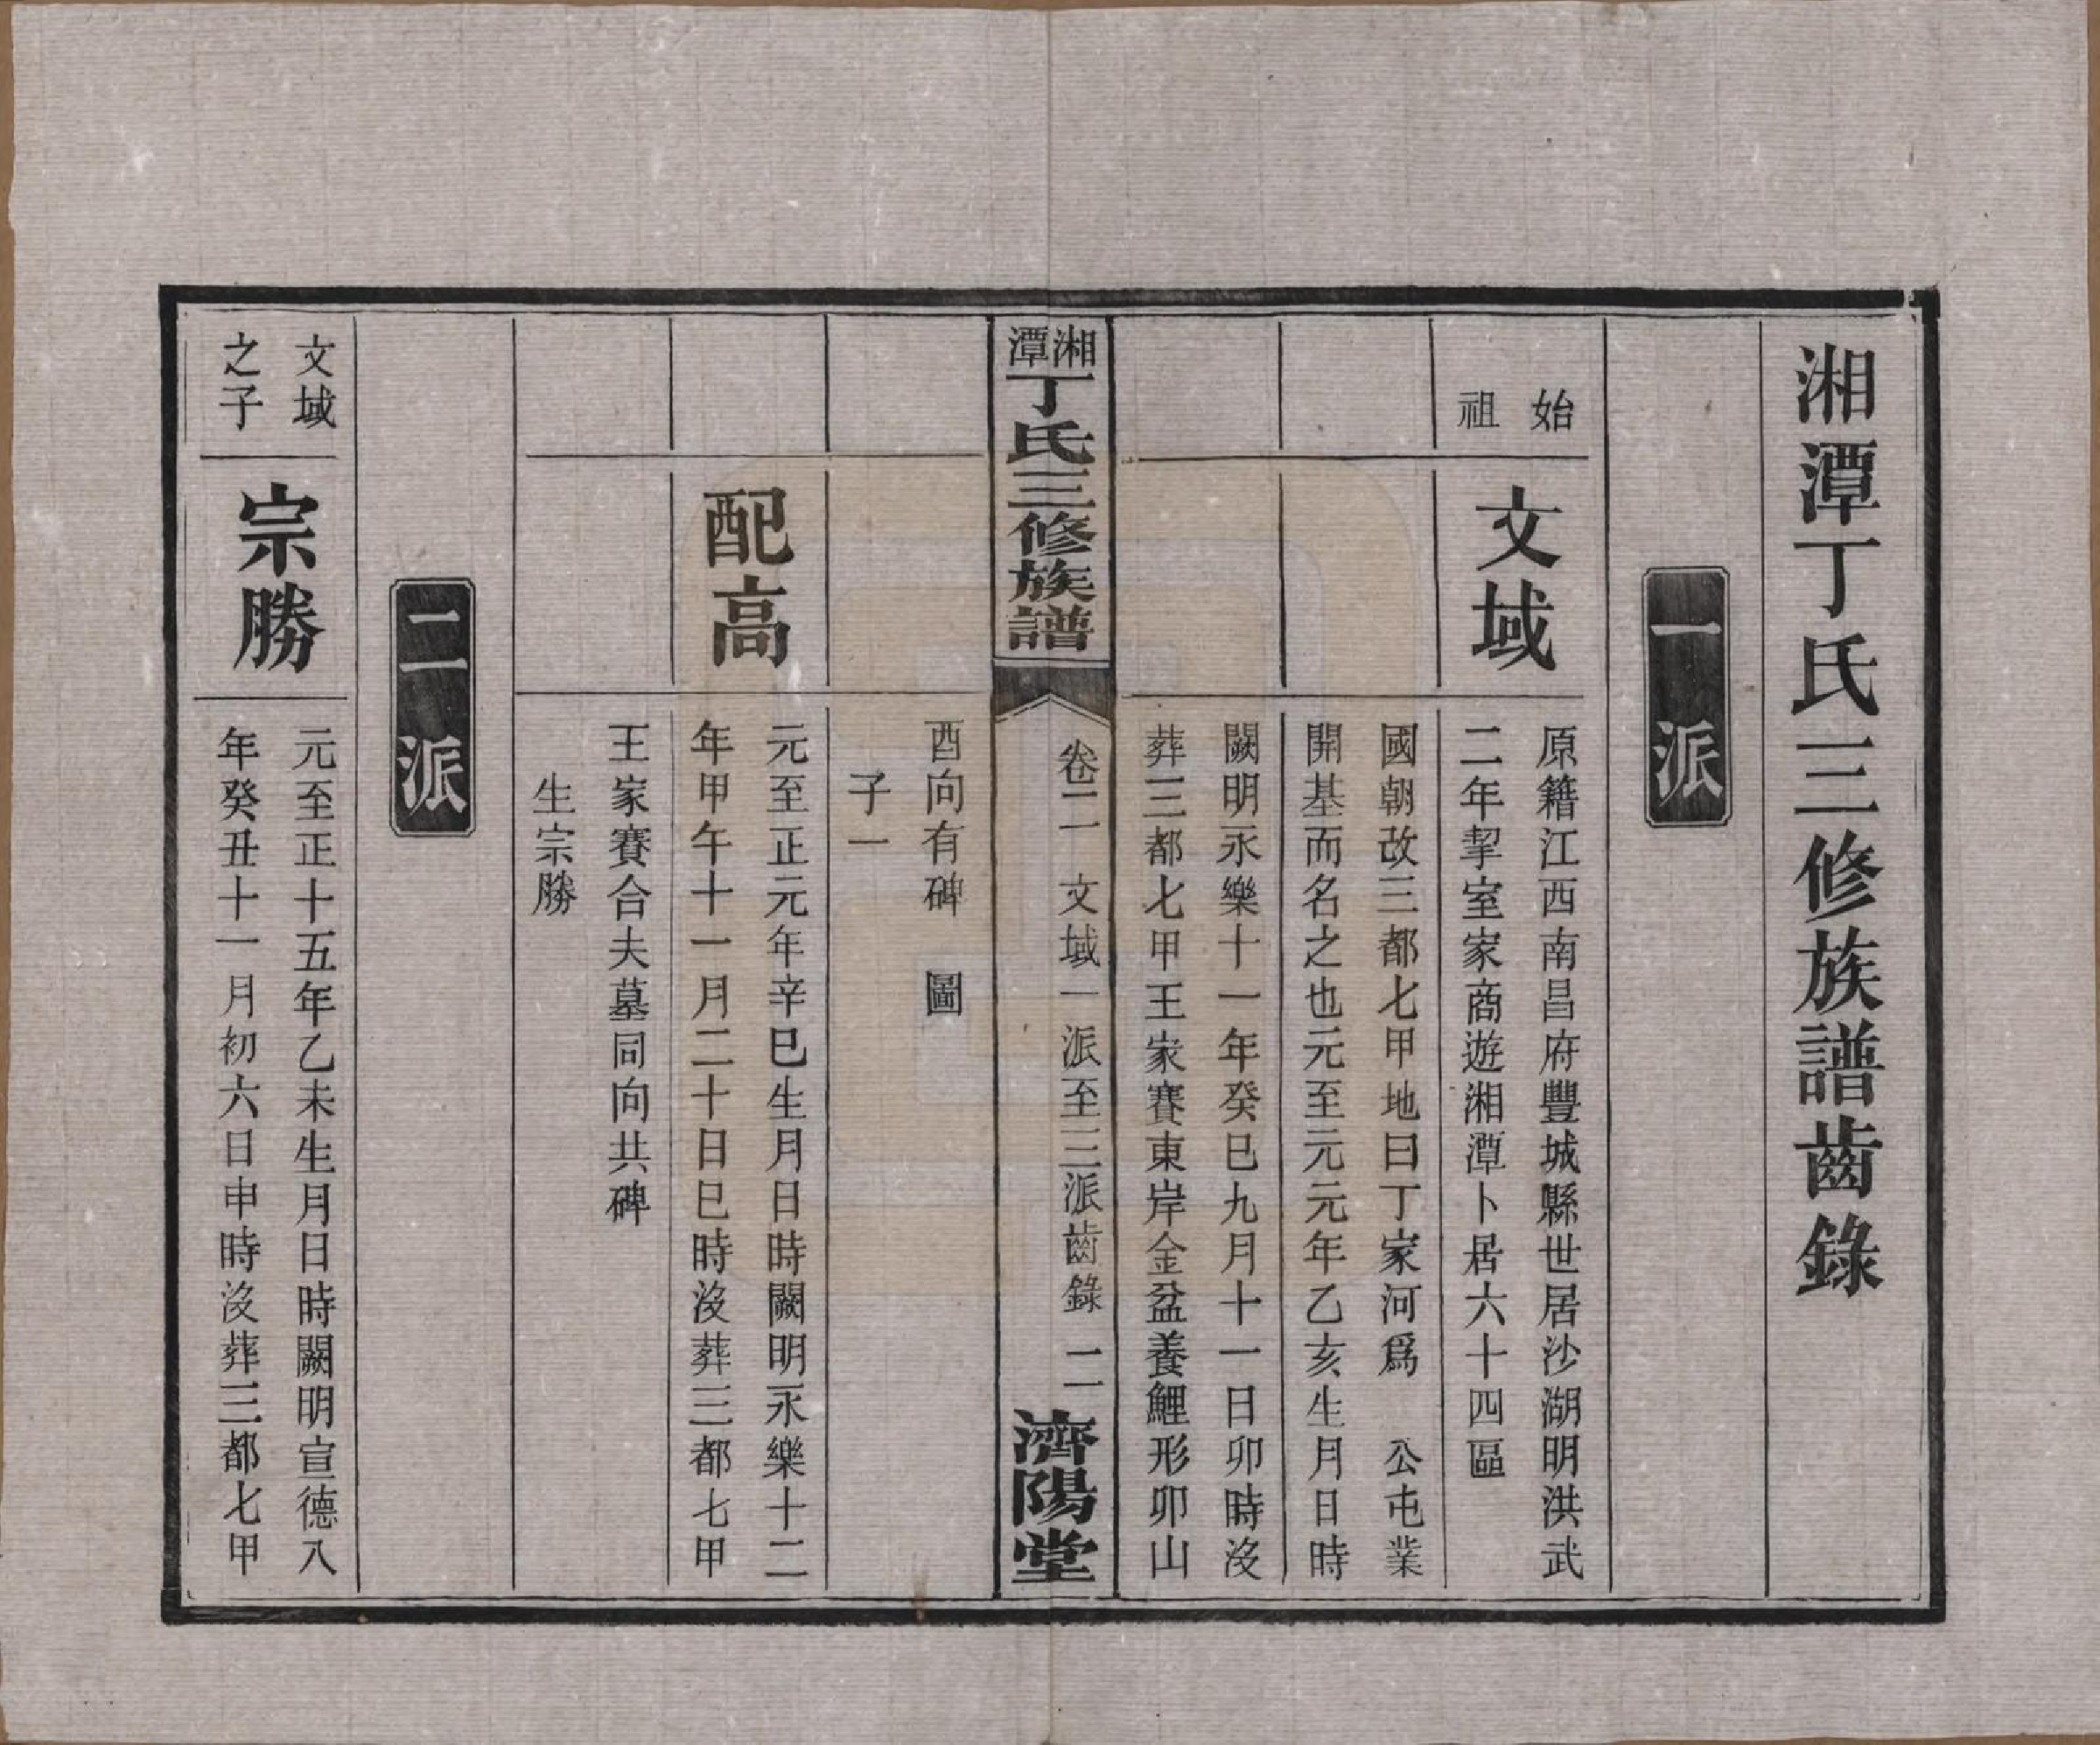 湘潭丁氏三修族譜齒錄
一派
始
祖
文域
原籍江西南昌府豐城縣世居沙湖明洪武
二年挈室家商遊湘潭卜居六十四區
國朝改三都七甲地曰丁家河爲　公屯業
開基而名之也元至元元年乙亥生月日時
闕明永樂十一年癸巳九月十一日卯時沒
葬三都七甲王家賽東岸金盆養鯉形卯山
湘潭丁氏三修族譜
卷二　文域一派至三派齒錄　二
濟陽堂
酉向有碑　圖
子一
配高
元至正元年辛巳生月日時闕明永樂十二
年甲午十一月二十日巳時沒葬三都七甲
王家賽合夫墓同向共碑
生宗勝
二派
文域
之子
宗勝
元至正十五年乙未生月日時闕明宣德八
年癸丑十一月初六日申時沒葬三都七甲